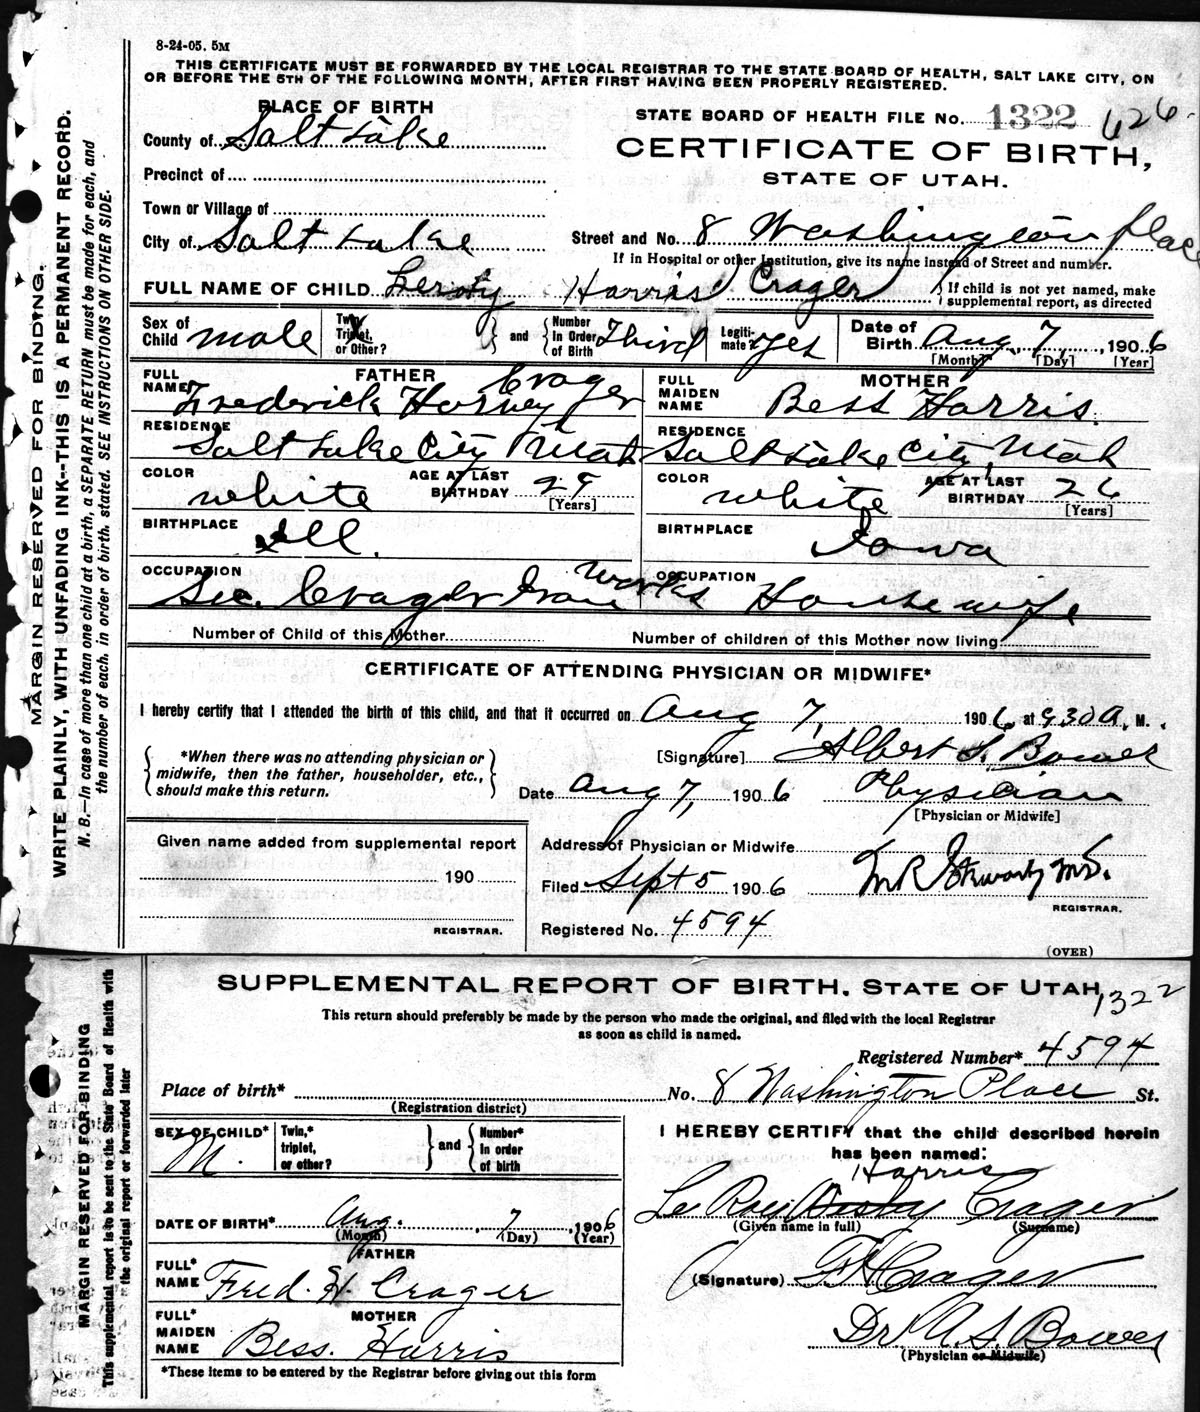 8-24-05. 5M
THIS CERTIFICATE MUST BE FORWARDED BY THE LOCAL REGISTRAR TO THE STATE BOARD OF HEALTH, SALT LAKE CITY, ON
OR BEFORE THE 5TH OF THE FOLLOWING MONTH, AFTER FIRST HAVING BEEN PROPERLY REGISTERED.
PLACE OF BIRTH
STATE BOARD OF HEALTH FILE No. 1322 626
County of Salt Lake
CERTIFICATE OF BIRTH,
Precinct of
STATE OF UTAH.
Town or Village of
City of Salt Lake Street and No. 8 Washington Place
If in Hospital or other Institution, give its name instead of Street and number.
FULL NAME OF CHILD Leroy Harris Crager { If child is not yet named, make
supplemental report, as directed
Sex of Child male Twin, Triplet, or Other? and Number In Order of Birth Third Legitimate? Yes Date of Birth Aug. 7, 1906
[Month] [Day] [Year]
FATHER
FULL NAME Frederick Harvey Crager
RESIDENCE
Salt Lake City Utah
COLOR white AGE AT LAST BIRTHDAY 29
[Years]
BIRTHPLACE
Ill.
OCCUPATION
Sec. Crager Iron Works
MOTHER
FULL MAIDEN NAME Bess Harris.
RESIDENCE
Salt Lake City, Utah
COLOR white AGE AT LAST BIRTHDAY 26
[Years]
BIRTHPLACE
Iowa
OCCUPATION
Housewife
Number of Child of this Mother Number of children of this Mother now living
CERTIFICATE OF ATTENDING PHYSICIAN OR MIDWIFE*
I hereby certify that I attended the birth of this child, and that it occurred on Aug 7, 1906, at 9.30 A. M.
*When there was no attending physician or
midwife, then the father, householder, etc.,
should make this return.
[Signature] Albert S. Bower
Date Aug 7, 1906 Physician
[Physician or Midwife]
Given name added from supplemental report
190
REGISTRAR.
Address of Physician or Midwife
Filed Sept 5 1906
REGISTRAR.
Registered No. 4594
(OVER)
MARGIN RESERVED FOR BINDING.
WRITE PLAINLY, WITH UNFADING INK--THIS IS A PERMANENT RECORD.
N. B.--In case of more than one child at a birth, a SEPARATE RETURN must be made for each, and
the number of each, in order of birth, stated. SEE INSTRUCTIONS ON OTHER SIDE.
SUPPLEMENTAL REPORT OF BIRTH, STATE OF UTAH 1322
This return should preferably be made by the person who made the original, and filed with the local Registrar
as soon as child is named.
Registered Number* 4594
Place of birth* No. 8 Washington Place St.
(Registration district)
SEX OF CHILD* M. Twin,* triplet, or other? and Number* In order of birth
DATE OF BIRTH* Aug. 7, 1906
(Month) (Day) (Year)
FATHER
FULL* NAME Fred. H. Crager
MOTHER
FULL* MAIDEN NAME Bess. Harris
*These items to be entered by the Registrar before giving out this form
I HEREBY CERTIFY that the child described herein
has been named:
Harris
Le Roy Crager
(Given name in full) (Surname)
(Signature) F H Crager
Dr. A. S. Bower
(Physician or Midwife)
MARGIN RESERVED FOR BINDING
This supplemental report is to be sent to the State Board of Health with
the original report or forwarded later